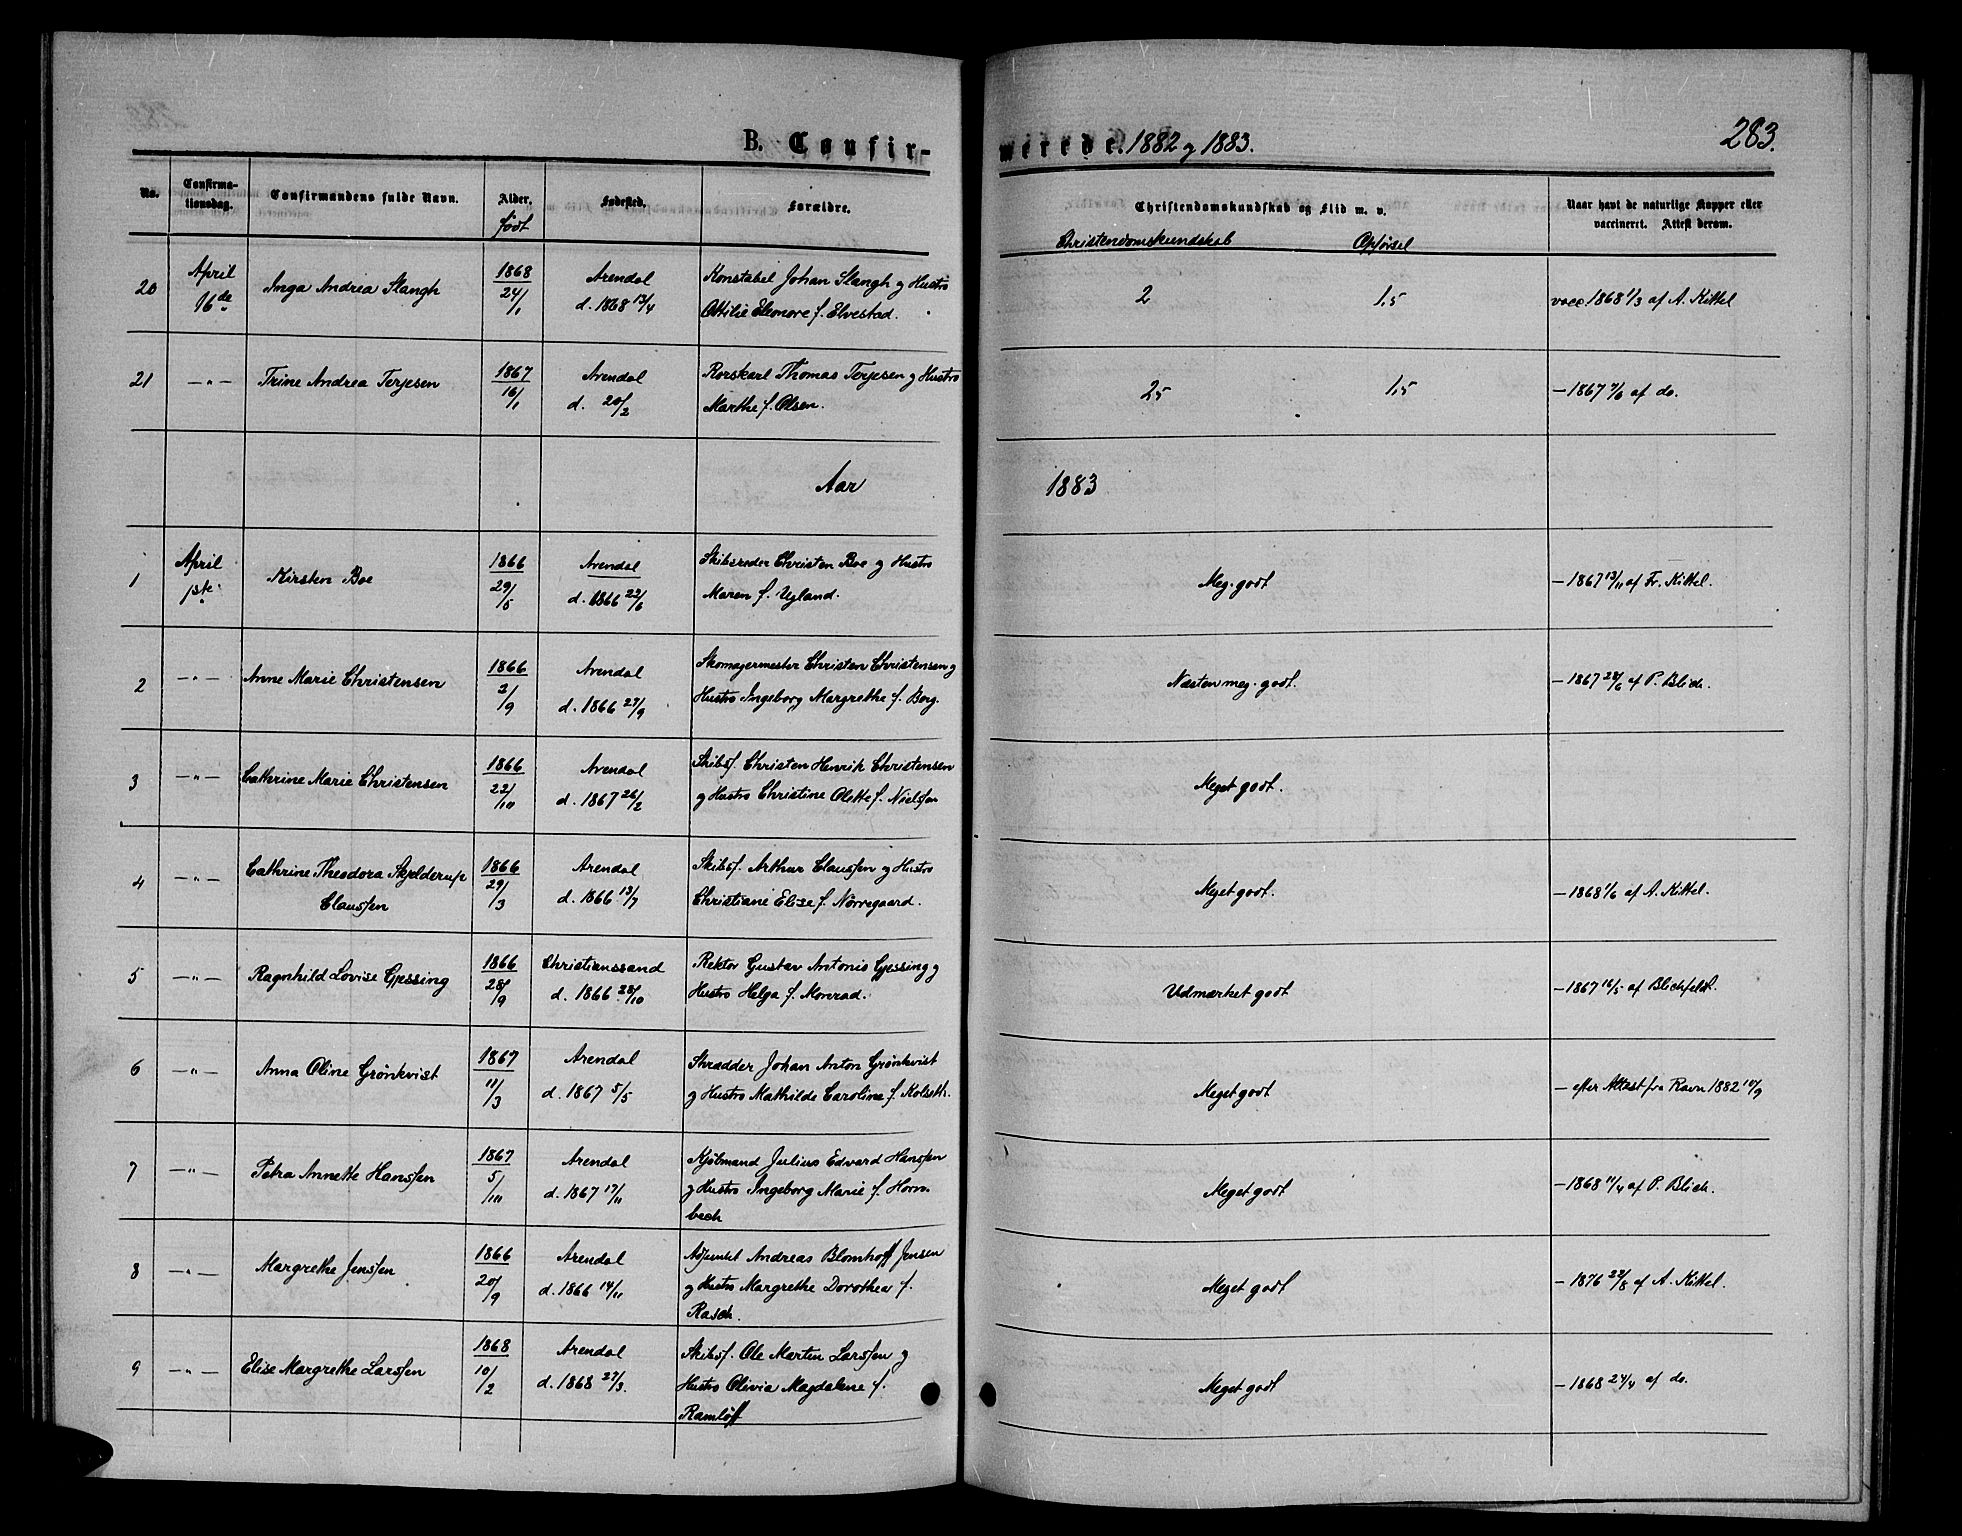 B. Confir-
merede. 1882 g 1883.
283.
No.
Confirma-
tionsdag.
Confirmandens fulde Navn.
Alder.
født
Fødested.
Forældre.
Christendomskundskab og Flid m. v.
Christendomskundskab
Opførsel
Naar havt de naturlige Kopper eller
vaccineret. Attest derom.
20
April
16de
Inga Andrea Slangh
1868
24/1
Arendal
d. 1868 13/4
Konstabel Johan Slangh g Hustro
Ottilie Eleonore f. Elvestad.
2
1,5
vacc 1868 1/3 af A. Kittel
21
—"—
Trine Andrea Terjesen
1867
16/1
Arendal
d. 20/2
Rorskarl Thomas Terjesen g Hustro
Marthe f. Olsen.
2,5
1,5
— 1867 7/6 af do.
Aar
1883
1
April
1ste
Kirsten Boe
1866
29/5
Arendal
d. 1866 22/6
Skibsreder Christen Boe g Hustro
Maren f. Ugland.
Meg. godt
— 1867 13/11 af Fr. Kittel.
2
—"—
Anne Marie Christensen
1866
2/9
Arendal
d. 1866 27/9
Skomagermester Christen Christensen g
Hustro Ingeborg Margrethe f. Berg.
Næsten meg. godt.
— 1867 28/6 af P. Blich.
3
—"—
Cathrine Marie Christensen
1866
22/10
Arendal
d. 1867 26/2
Skibsf. Christen Henrik Christensen
g Hustro Christine Olette f. Nielsen
Meget godt.
4
—"—
Cathrine Theodora Skjelderup
Claussen
1866
29/3
Arendal
d. 1866 13/7
Skibsf. Arthur Claussen g Hustro
Christiane Elise f. Nørregaard.
Meget godt.
— 1868 1/6 af A. Kittel.
5
—"—
Ragnhild Lovise Gjessing
1866
28/9
Christianssand
d. 1866 28/10
Rektor Gustav Antonio Gjessing g
Hustro Helga f. Monrad.
Udmærket godt
— 1867 16/5 af Blichfeldt.
6
—"—
Anna Oline Grønkvist
1867
11/3
Arendal
d. 1867 5/5
Skrædder Johan Anton Grønkvist
g Hustro Mathilde Caroline f. Kolseth.
Meget godt
— efter Attest fra Ravn 1882 10/9
7
—"—
Petra Annette Hanssen
1867
5/10
Arendal
d. 1867 17/11
Kjøbmand Julius Edvard Hanssen
g Hustro Ingeborg Marie f. Horn-
bech
Meget godt
— 1868 17/4 af P. Blich.
8
—"—
Margrethe Jenssen
1866
20/9
Arendal
d. 1866 14/11
Adjunkt Andreas Blomhoff Jensen
g Hustro Margrethe Dorothea f.
Rasch.
Meget godt
— 1876 22/8 af A. Kittel.
9
—"—
Elise Margrethe Larssen
1868
10/2
Arendal
d. 1868 27/3.
Skibsf. Ole Martin Larssen g
Hustro Olivia Magdalene f.
Ramløff
Meget godt
— 1868 24/4 af do.